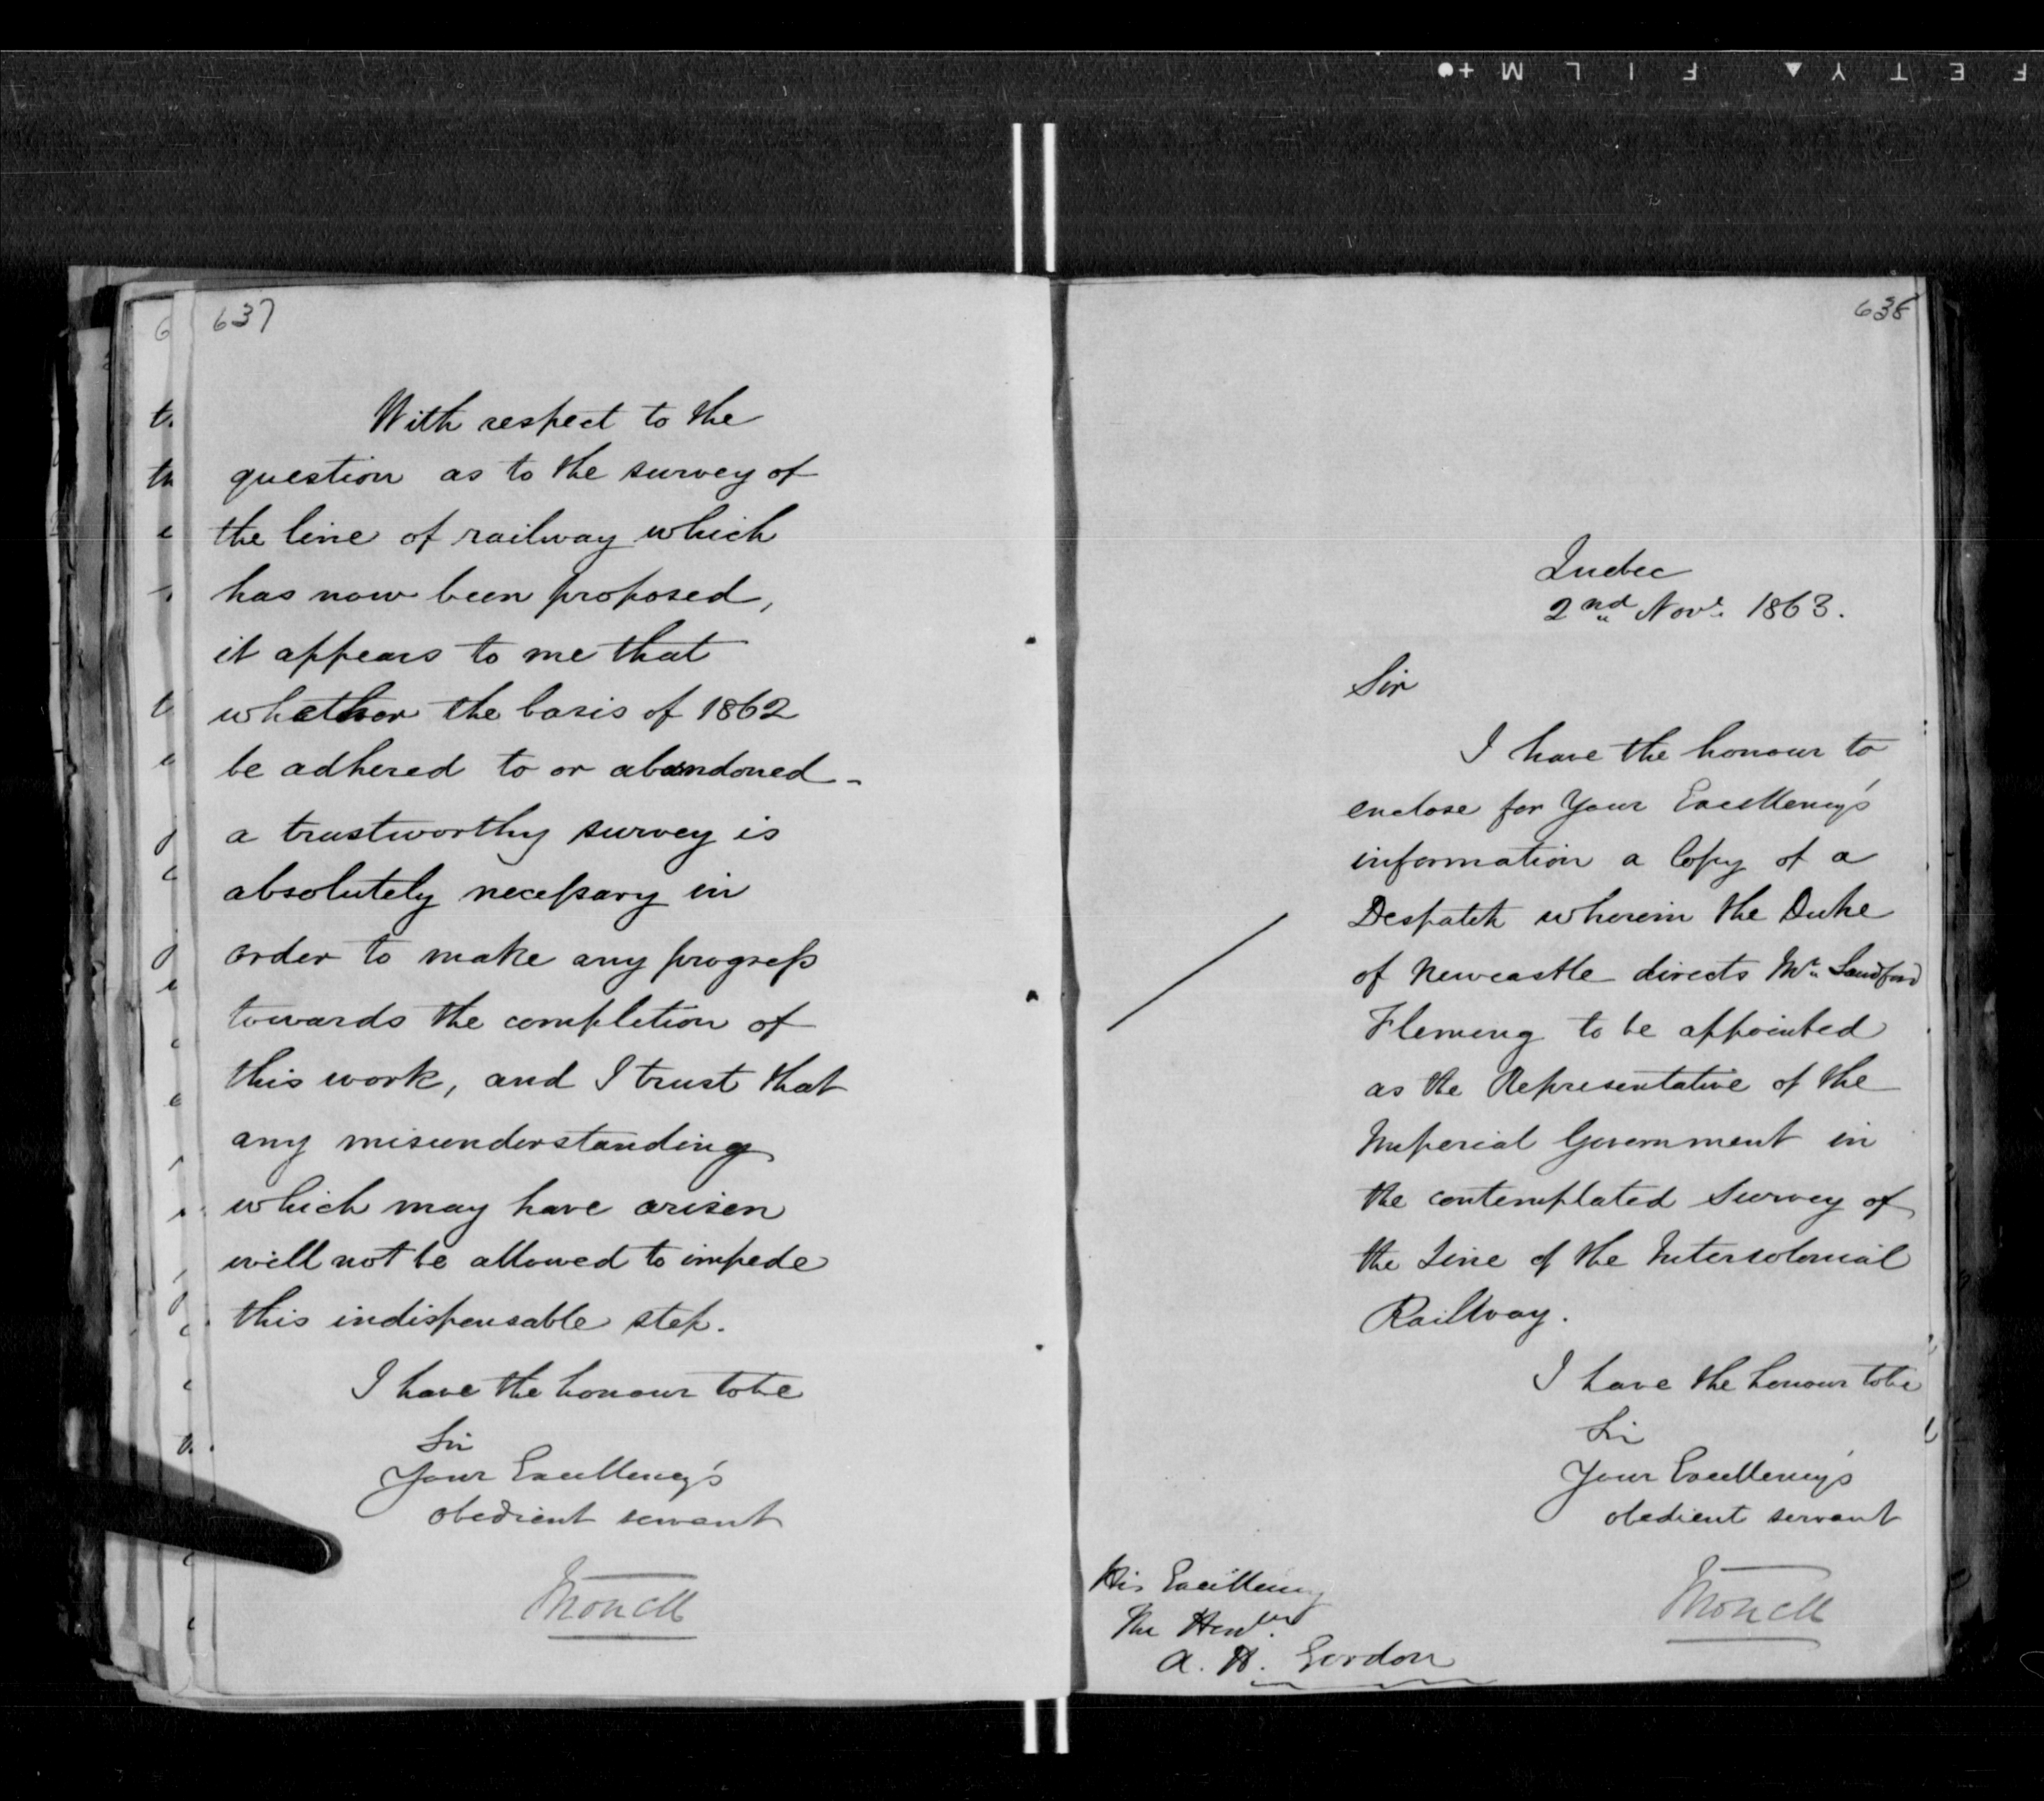 637
With respect to the
question as to the survey of
the line of railway which
has now been proposed,
it appears to me that
whether the basis of 1862
be adhered to or abandoned -
a trustworthy survey is
absolutely necessary in
order to make any progress
towards the completion of
this work, and I trust that
any misunderstanding
which may have arisen
will not be allowed to impede
this indispensable step.
I have the honour to be
Sir
Your Excellency's
obedient servant
Monck
638
Quebec
2nd Novr. 1863.
Sir
I have the honour to
enclose for Your Excellency's
information a Copy of a
Despatch wherein the Duke
of Newcastle directs Mr. Sandford
Fleming to be appointed
as the Representative of the
Imperial Government in
the contemplated Survey of
the Line of the Intercolonial
Railway.
I have the honour to be
Sir
Your Excellency's
obedient servant
Monck
His Excellency
The Honble.
A. H. Gordon
F E T Y ▲ F I L M +●